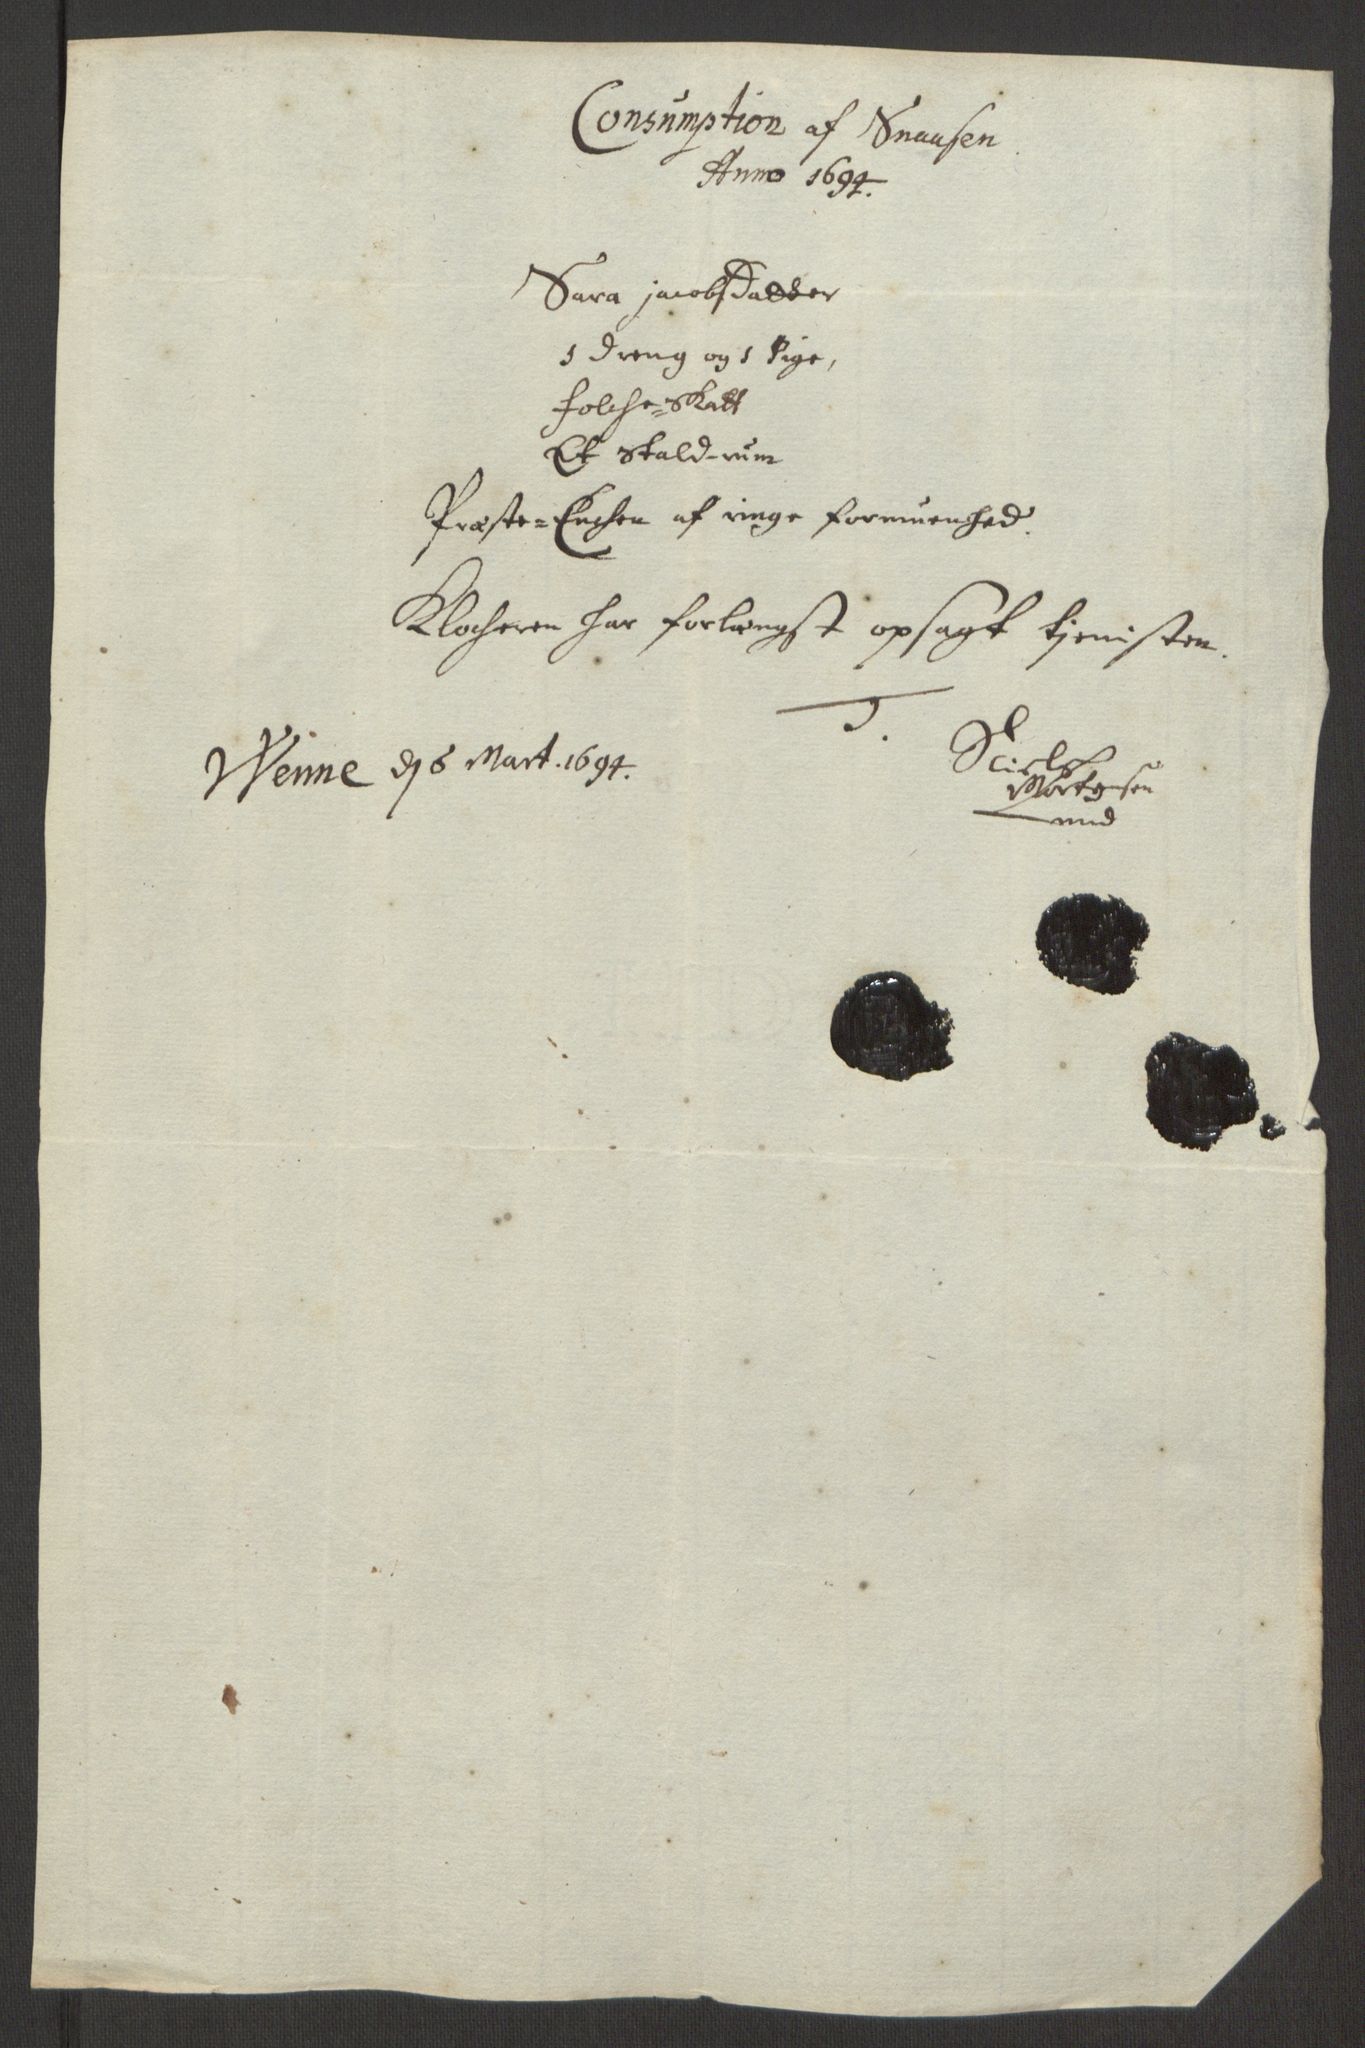 Consumption af Snaasen
Anno 1694.
Sara jacobsdatter
1 dreng og 1 Pige,
folche=Skatt
Et Stald-rum
Præste=Enchen af ringe formuenhed.
Klocheren har forlængst opsagt tjenisten.
T.
Niels
Mortensen
Lund
Wenne dj 6 Mart. 1694.